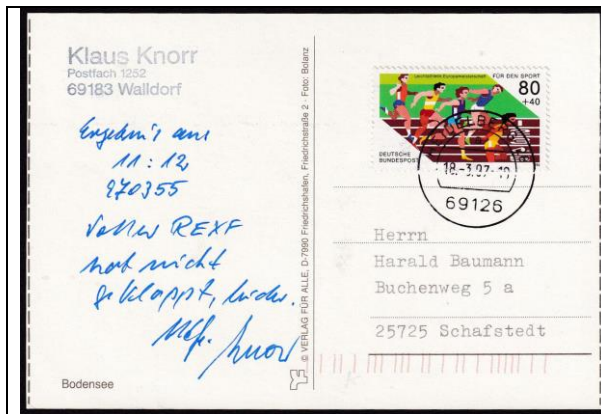 Klaus Knorr
Postfach 1252
69183 Walldorf
Ergebnis aus
11:12
270355
Voller REXF
hat nicht
geklappt, leider.
Mfg. Knorr
Bodensee
© VERLAG FÜR ALLE, D-7990 Friedrichshafen, Friedrichstraße 2 · Foto: Bolanz
FÜR DEN SPORT
80
+40
DEUTSCHE
BUNDESPOST
18.-3.97-19
69126
Herrn
Harald Baumann
Buchenweg 5 a
25725 Schafstedt